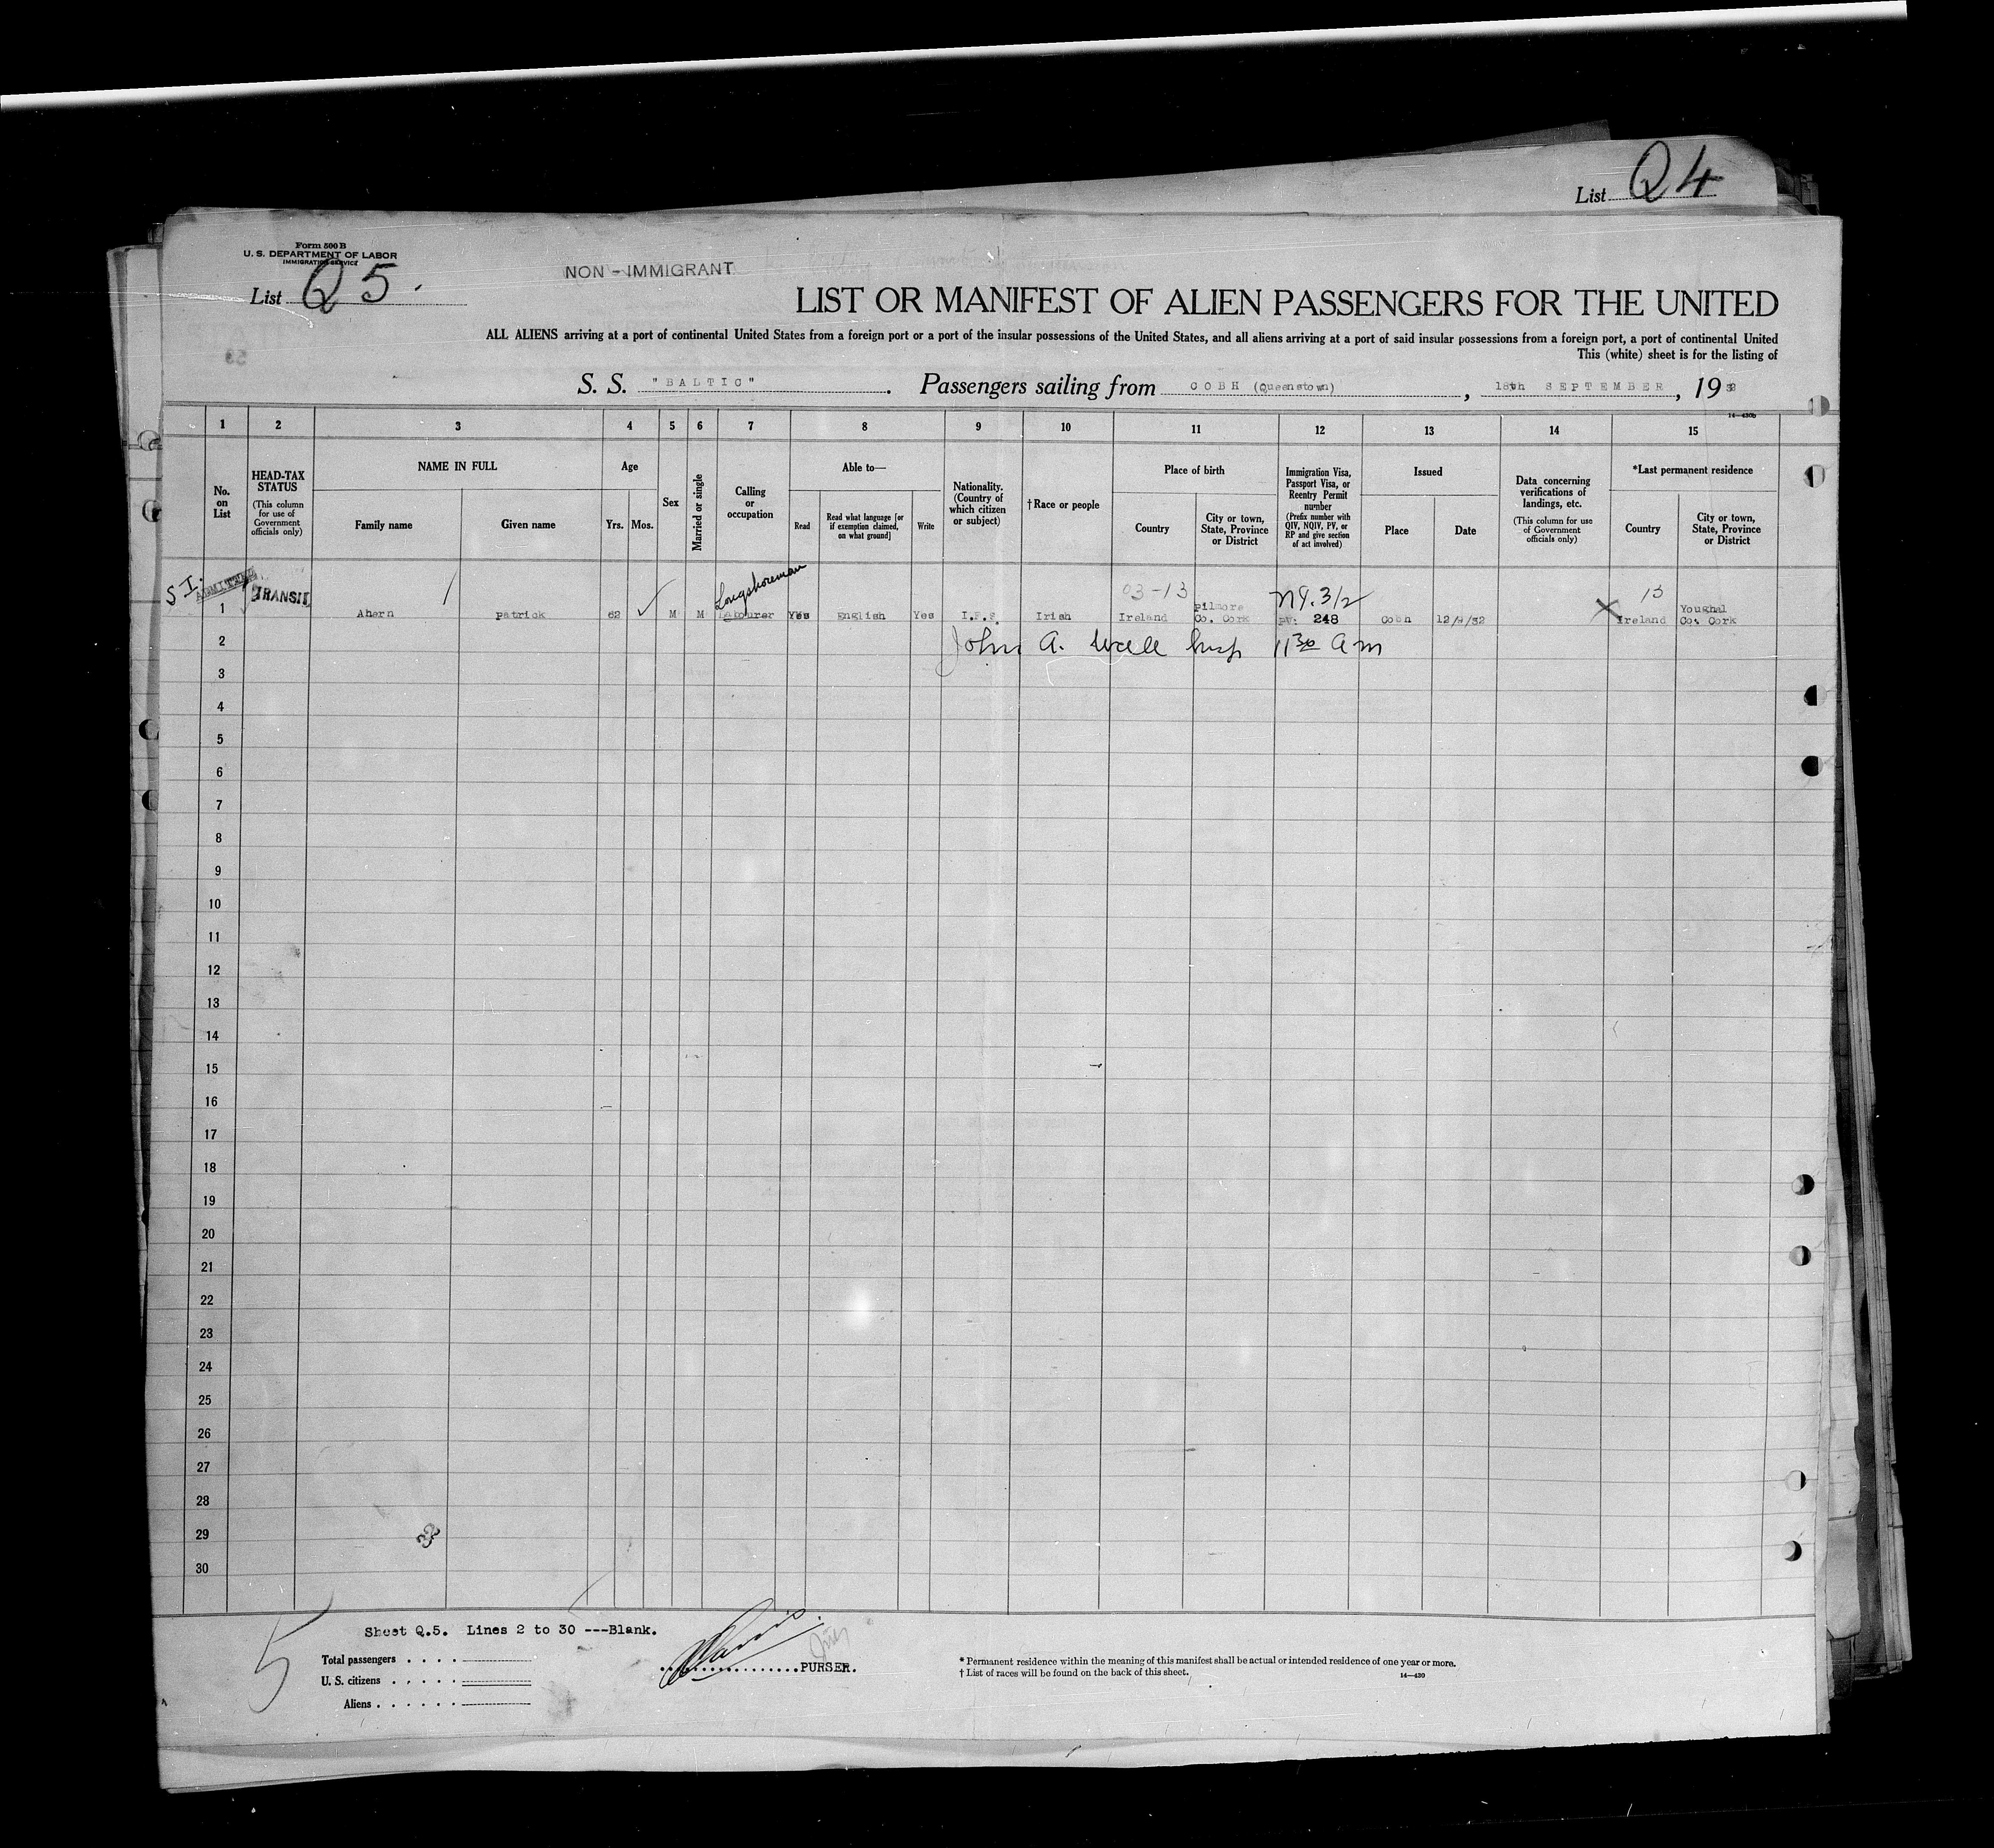 List Q4
Form 500 B
U. S. DEPARTMENT OF LABOR
IMMIGRATION SERVICE
List Q5.
NON - IMMIGRANT
LIST OR MANIFEST OF ALIEN PASSENGERS FOR THE UNITED
ALL ALIENS arriving at a port of continental United States from a foreign port or a port of the insular possessions of the United States, and all aliens arriving at a port of said insular possessions from a foreign port, a port of continental United
This (white) sheet is for the listing of
S. S. "BALTIC" . Passengers sailing from COBH (Queenstown) , 18th SEPTEMBER , 19
14—430b
1 2 3 4 5 6 7 8 9 10 11 12 13 14 15
No. on List
HEAD-TAX STATUS
(This column for use of Government officials only)
NAME IN FULL
Family name Given name
Age
Yrs. Mos.
Sex
Married or single
Calling or occupation
Able to—
Read
Read what language [or if exemption claimed, on what ground]
Write
Nationality. (Country of which citizen or subject)
†Race or people
Place of birth
Country
City or town, State, Province or District
Immigration Visa, Passport Visa, or Reentry Permit number
(Prefix number with QIV, NQIV, PV, or RP and give section of act involved)
Issued
Place Date
Data concerning verifications of landings, etc.
(This column for use of Government officials only)
*Last permanent residence
Country
City or town, State, Province or District
S I. ADMITTED TRANSIT Longshoreman 03-13 NY. 3/2 13
1 Ahern Patrick 62 M M Labourer Yes English Yes I.F.S. Irish Ireland Pilmore Co. Cork PV: 248 Cobh 12/9/32 Ireland Youghal Co. Cork
2 John A. Wall Insp 11 30 am
3
4
5
6
7
8
9
10
11
12
13
14
15
16
17
18
19
20
21
22
23
24
25
26
27
28
29
30
5
Sheet Q.5. Lines 2 to 30 ---Blank.
Total passengers . . . .
U. S. citizens . . . . .
Aliens . . . . . .
PURSER.
* Permanent residence within the meaning of this manifest shall be actual or intended residence of one year or more.
† List of races will be found on the back of this sheet.
14—430